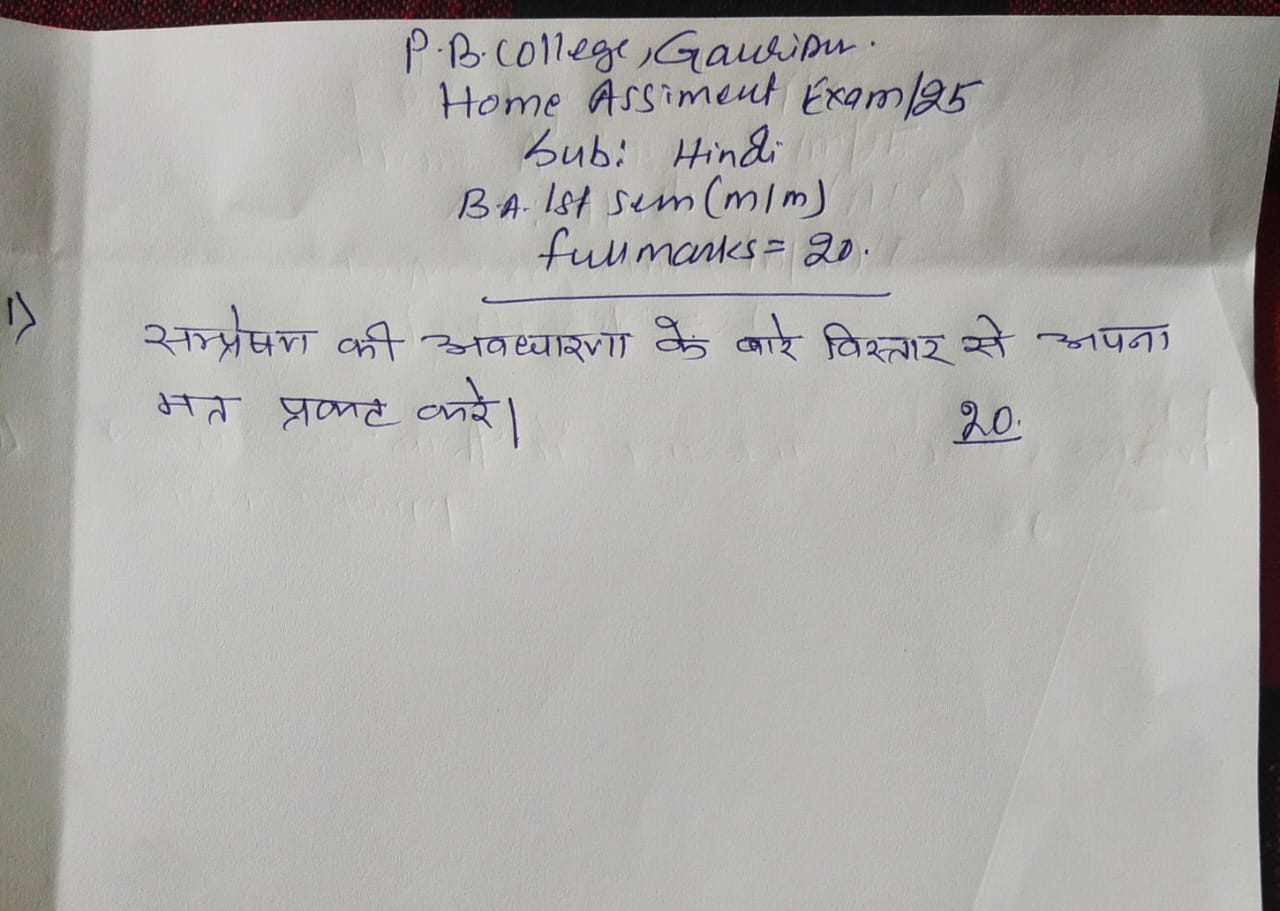 P.B. College, Gauripur.
Home Assiment Exam/25
Sub: Hindi
B.A. 1st Sem (m/m)
full marks = 20.
1) सम्प्रेषण की अवधारणा के बारे विस्तार से अपना
मत प्रकट करे। 20.